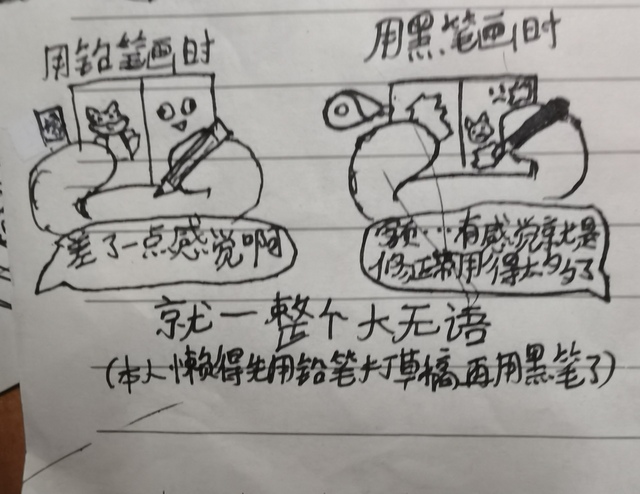 用铅笔画时
用黑笔画时
差了一点感觉啊
额…有感觉就是
修正带用得太多了
就一整个大无语
(本人懒得先用铅笔打草稿再用黑笔了)